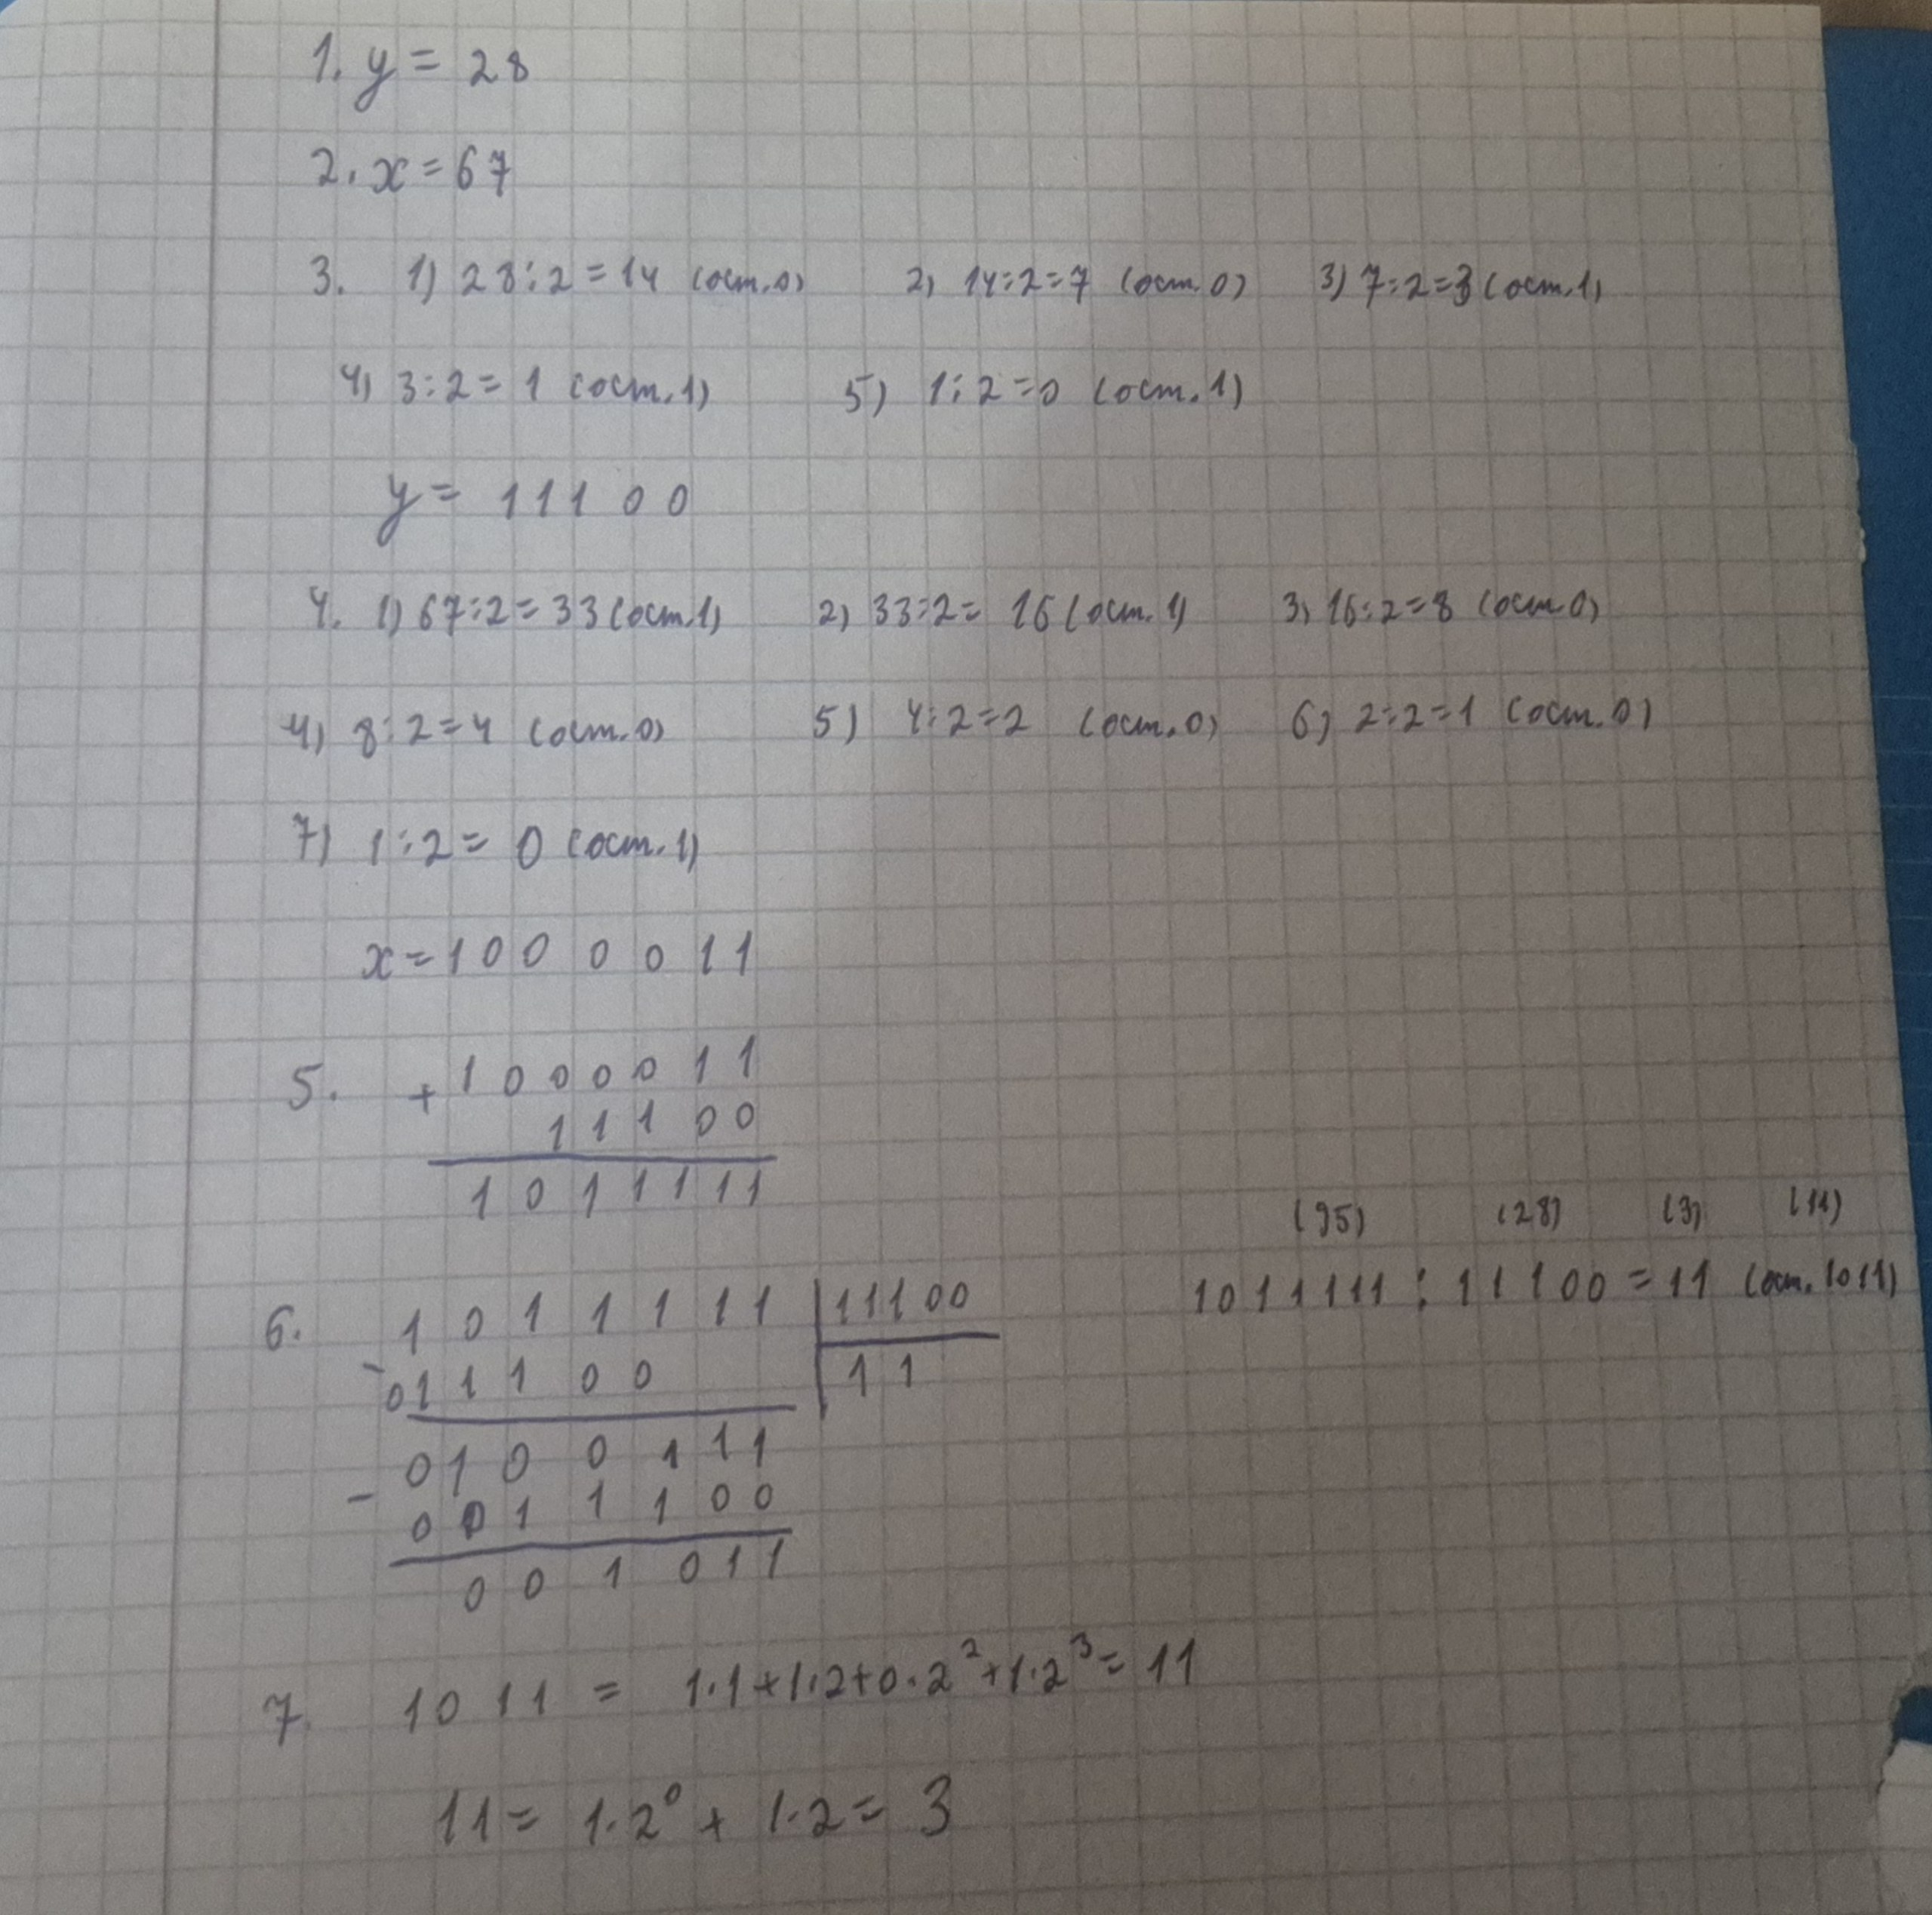 1. y = 28
2. x = 67
3. 1) 28:2=14 (ост.0) 2) 14:2=7 (ост.0) 3) 7:2=3 (ост.1)
4) 3:2=1 (ост.1) 5) 1:2=0 (ост.1)
y = 11100
4. 1) 67:2=33 (ост.1) 2) 33:2=16 (ост.1) 3) 16:2=8 (ост.0)
4) 8:2=4 (ост.0) 5) 4:2=2 (ост.0) 6) 2:2=1 (ост.0)
7) 1:2=0 (ост.1)
x=1000011
5. +1000011
11100
1011111
(95) (28) (3) (11)
6. 1011111 |11100 1011111 : 11100 = 11 (ост. 1011)
-011100 11
0100111
- 0011100
001011
7. 1011 = 1·1+1·2+0·2²+1·2³=11
11= 1·2⁰ + 1·2= 3